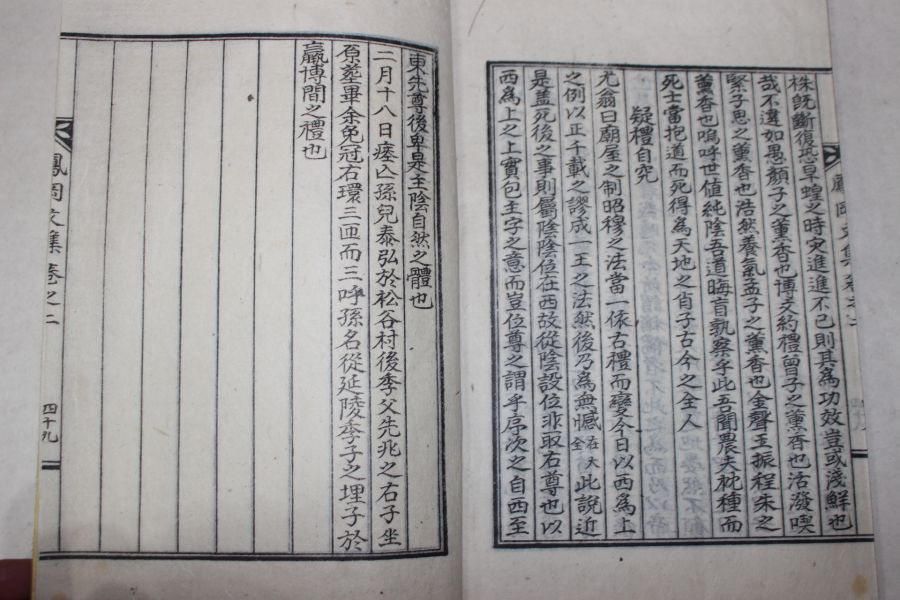 株既斷復恐旱蝗之時灾進進不已則其為功效豈或淺鮮也
哉不違如愚顏子之薰香也博文約禮曾子之薰香也活潑喫
緊子思之薰香也浩然養氣孟子之薰香也金聲玉振程朱之
薰香也嗚呼世値純陰吾道晦盲孰察乎此吾聞農夫枕種而
死士當抱道而死得為天地之肖子古今之全人
疑禮自究
尤翁曰廟屋之制昭穆之法當一依古禮而變今日以西為上
之例以正千載之謬成一王之法然後乃為無憾在大全此說近
是盖死後之事則屬陰陰位在西故從陰設位非取右尊也以
西為上上實包主字之意而豈位尊之謂乎序次之自西至
東先尊後卑是主陰自然之體也
二月十八日瘞亾孫兒泰弘於松谷村後季父先兆之右子坐
原塟畢余免冠右環三匝而三呼孫名從延陵季子之埋子於
嬴博間之禮也
鳳岡文集卷之二
四十九